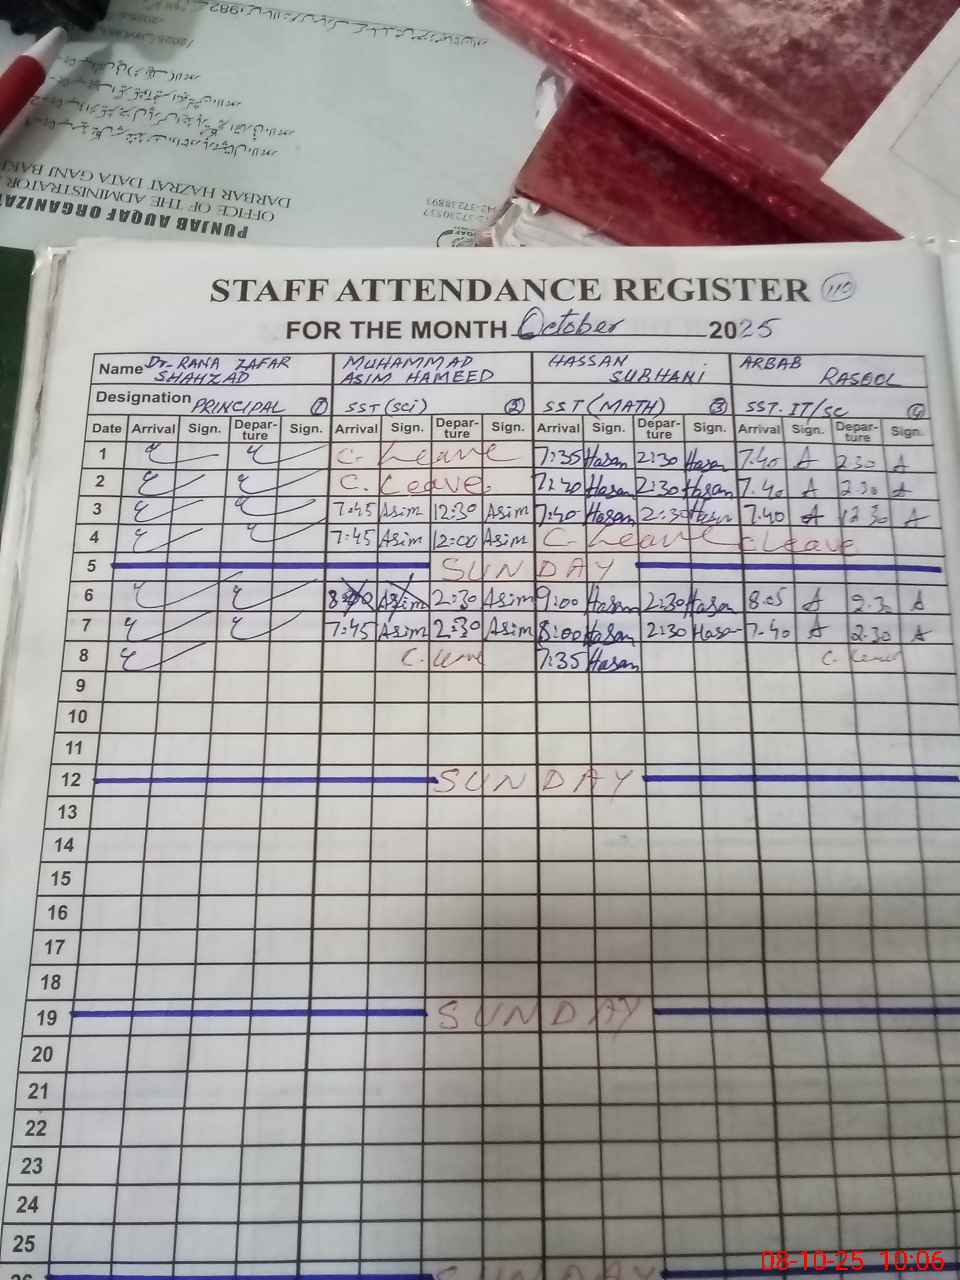 PUNJAB AUQAF ORGANIZAT
OFFICE OF THE ADMINISTRATOR
DARBAR HAZRAT DATA GANJ BAK
STAFF ATTENDANCE REGISTER 110
FOR THE MONTH October 2025
Name Dr. RANA ZAFAR SHAHZAD MUHAMMAD ASIM HAMEED HASSAN SUBHANI ARBAB RASOOL
Designation PRINCIPAL 1 SST (Sci) 2 SST (MATH) 3 SST. IT/SC 4
Date Arrival Sign. Departure Sign. Arrival Sign. Departure Sign. Arrival Sign. Departure Sign. Arrival Sign. Departure Sign.
1 C. Leave 7:35 Hasan 2:30 Hasan 7.40 A 2.30 A
2 C. Leave. 7:40 Hasan 2:30 Hasan 7.40 A 2.30 A
3 7:45 Asim 12:30 Asim 7:40 Hasan 2:30 Hasan 7.40 A 12.30 A
4 7:45 Asim 12:00 Asim C. Leave C Leave
5 SUNDAY
6 Asim 2:30 Asim 9:00 Hasan 2:30 Hasan 8.05 A 2.30 A
7 7:45 Asim 2:30 Asim 8:00 Hasan 2:30 Hasan 7.40 A 2.30 A
8 C. Leave 7:35 Hasan C. Leave
9
10
11
12 SUNDAY
13
14
15
16
17
18
19 SUNDAY
20
21
22
23
24
25
26 SUNDAY
08-10-25 10:06